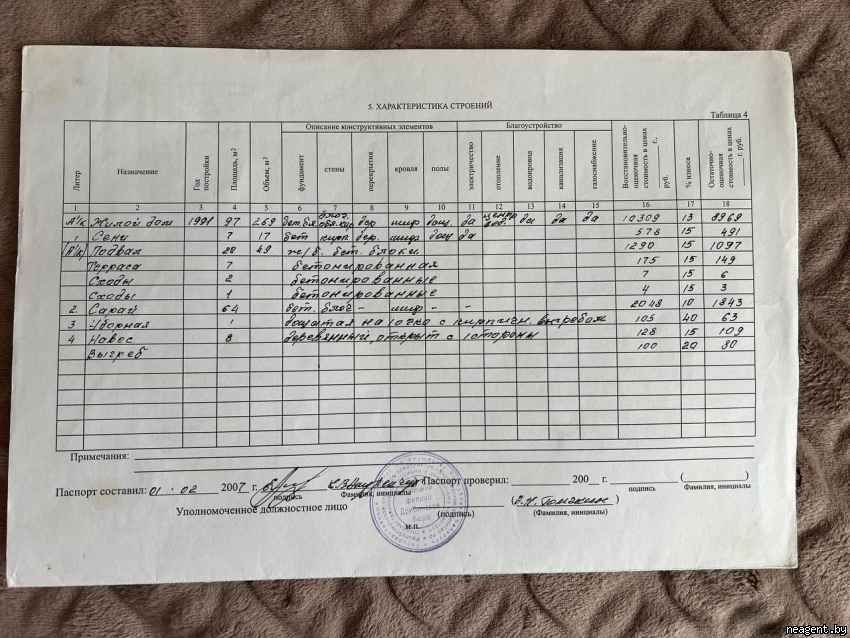 5. ХАРАКТЕРИСТИКА СТРОЕНИЙ
Таблица 4
Литер Назначение Год постройки Площадь, м² Объем, м³ Описание конструктивных элементов Благоустройство Восстановительно-оценочная стоимость в ценах г., руб. % износа Остаточно-оценочная стоимость в ценах г., руб.
фундамент стены перекрытия кровля полы электричество отопление водопровод канализация газоснабжение
1 2 3 4 5 6 7 8 9 10 11 12 13 14 15 16 17 18
А¹/к Жилой дом 97 269 бет.бл. дер шиф дощ. да центр да да да 10309 13 8969
1 Сени 7 17 бет кирп дер. шиф дощ да 578 15 491
(А¹/к) Подвал 20 49 ж/б. бет. блоки 1290 15 1097
Терраса 7 бетонированная 175 15 149
Сходы 2 бетонированные 7 15 6
Сходы 1 бетонированные 4 15 3
2 Сарай 64 бет. блоч - шиф - - 2048 10 1843
3 Уборная 1 дощатая на 1 очко с кирпичн. выгребом 105 40 63
4 Навес 8 деревянный, открыт с 1 стороны 128 15 109
Выгреб 100 20 80
Примечания:
Паспорт составил: 01 . 02 2007 г. Паспорт проверил: 200 г.
подпись Фамилия, инициалы подпись Фамилия, инициалы
Уполномоченное должностное лицо
м.п. (подпись) (Фамилия, инициалы)
neagent.by